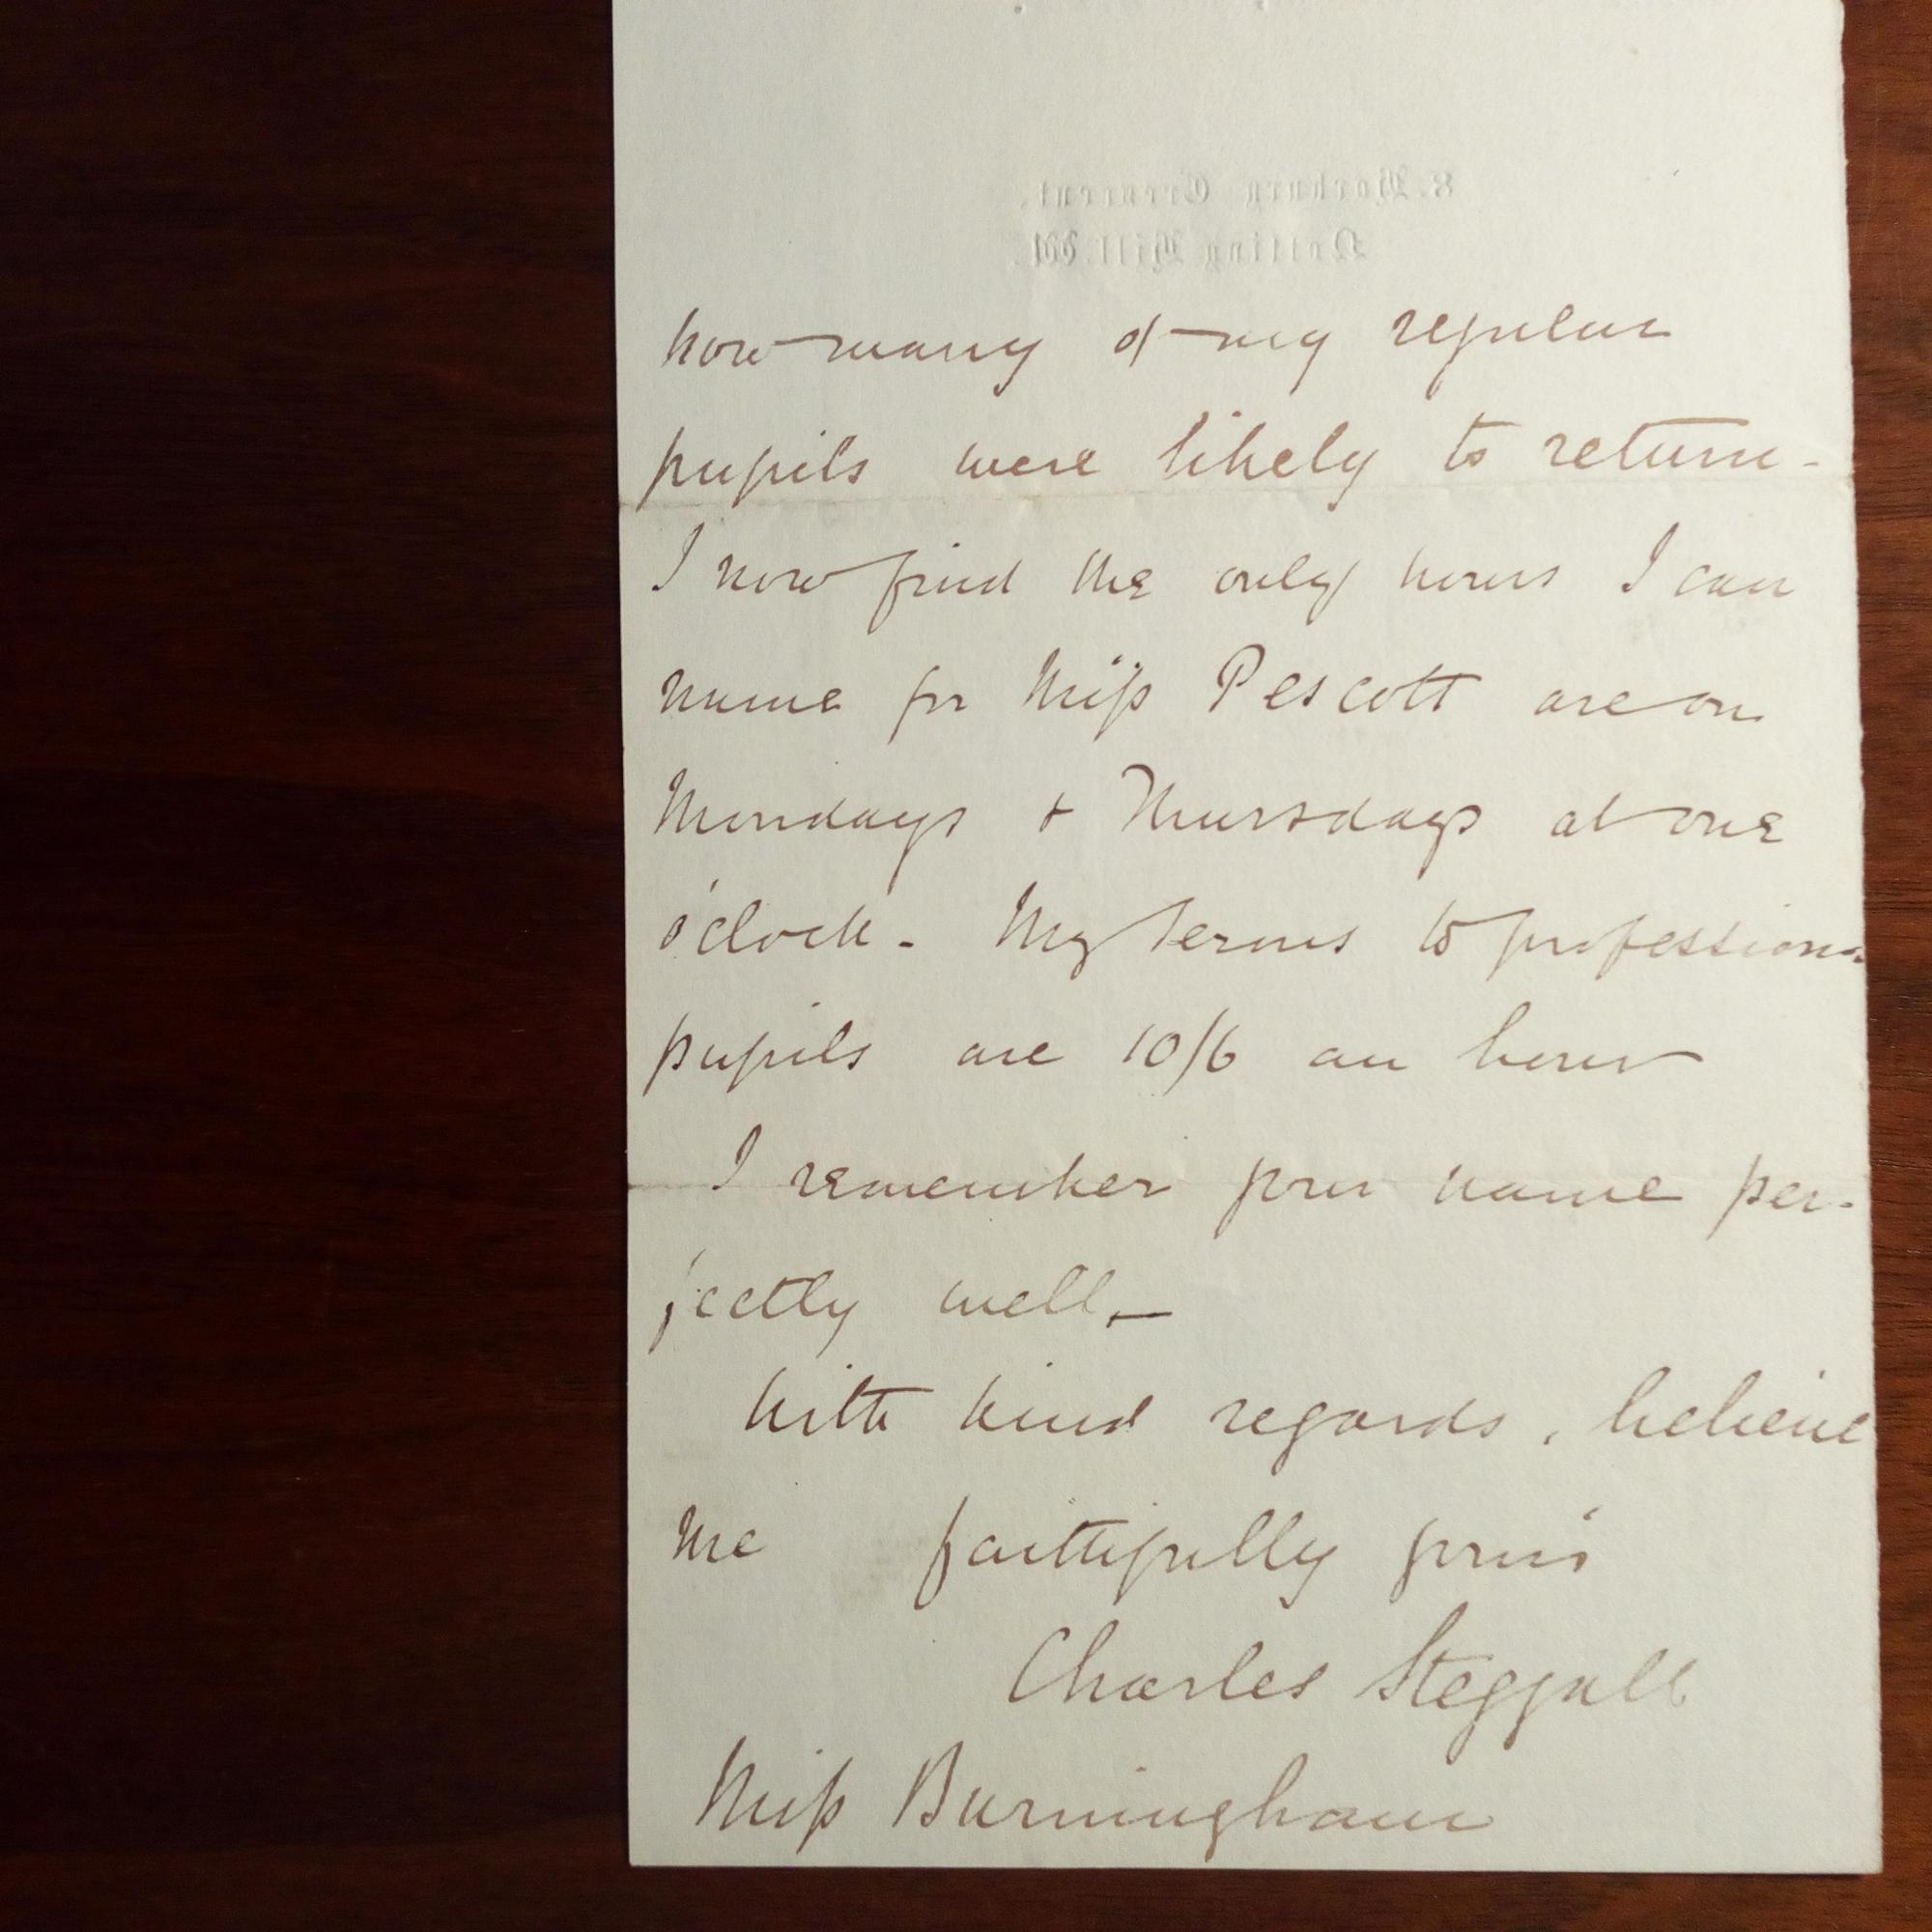 8. Horbury Crescent.
Notting Hill. W.
how many of my regular
pupils were likely to return -
I now find the only hours I can
name for Miss Pescott are on
Mondays + Thursdays at one
o'clock - My terms to professional
pupils are 10/6 an hour
I remember your name per-
fectly well, -
With kind regards, believe
me faithfully yours
Charles Steggall
Miss Burningham